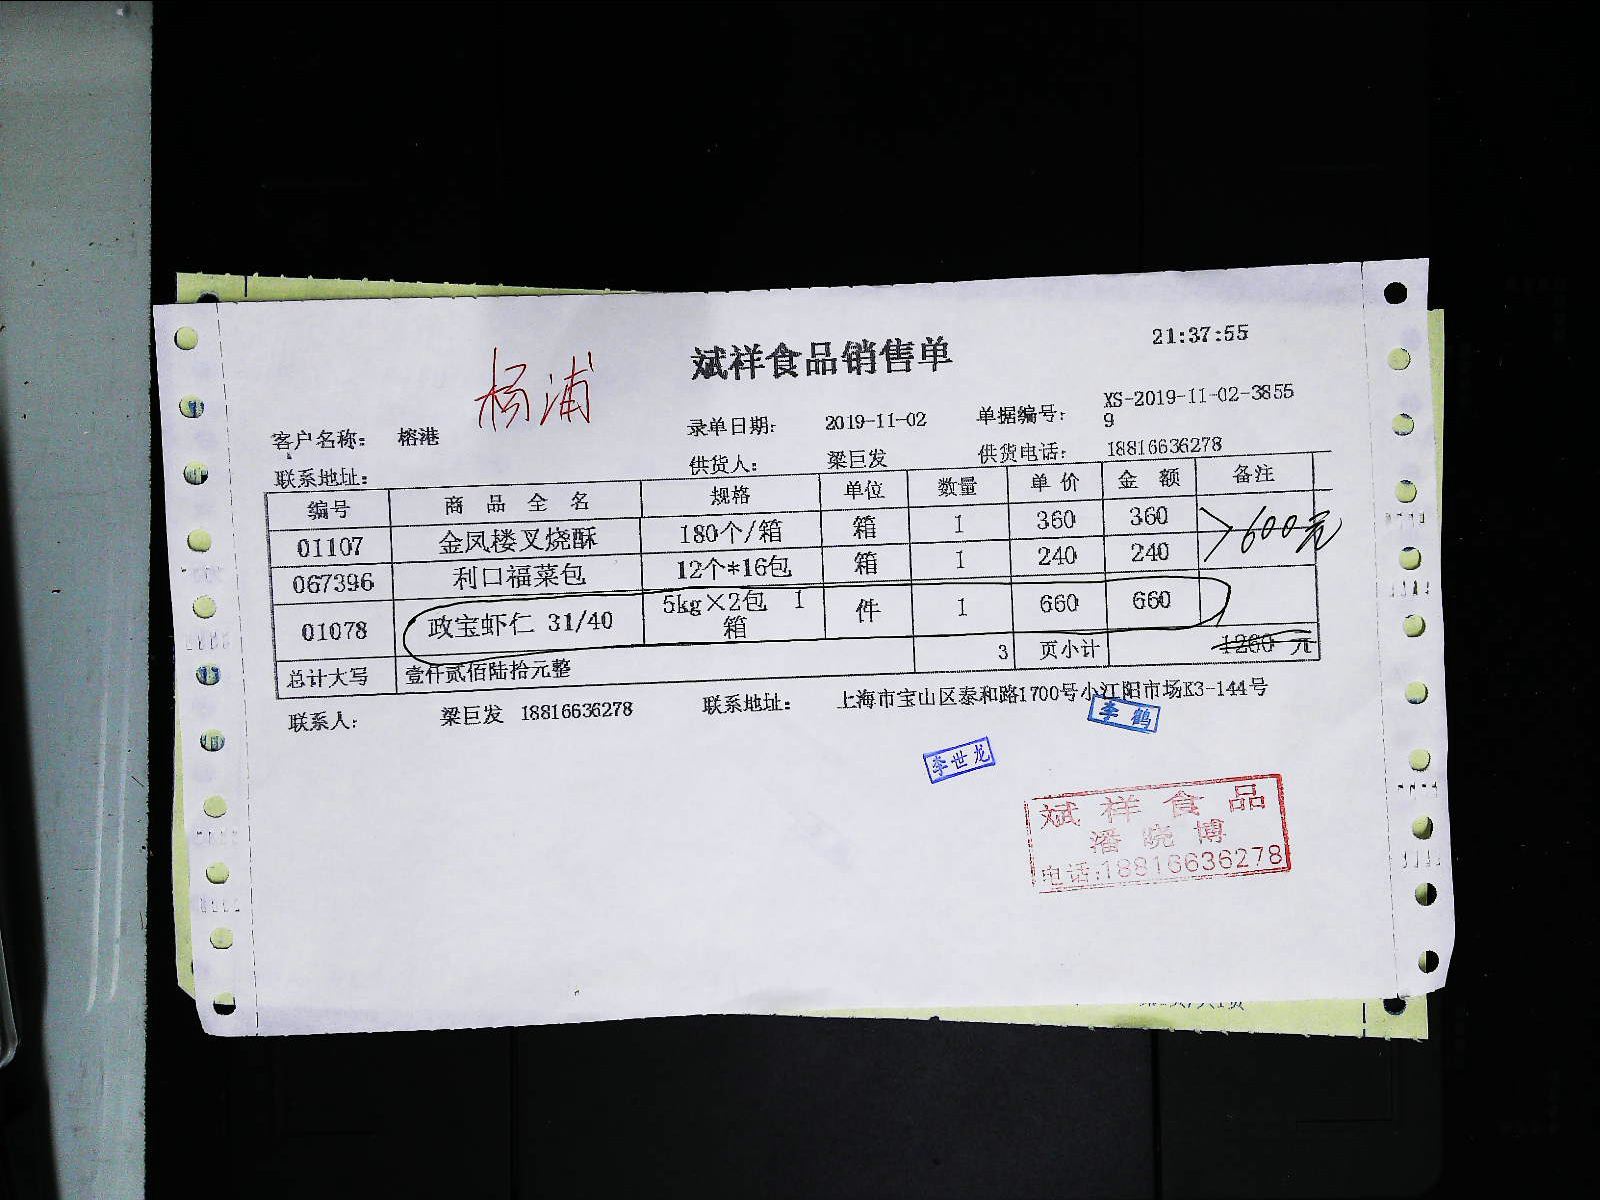 21:37:55
斌祥食品销售单
杨浦
客户名称： 榕港 录单日期： 2019-11-02 单据编号： XS-2019-11-02-3855
9
联系地址： 供货人： 梁巨发 供货电话： 18816636278
编号 商品全名 规格 单位 数量 单价 金额 备注
01107 金凤楼叉烧酥 180个/箱 箱 1 360 360
067396 利口福菜包 12个*16包 箱 1 240 240
600元
01078 政宝虾仁 31/40 5kg×2包 1
箱 件 1 660 660
总计大写 壹仟贰佰陆拾元整 3 页小计 1260 元
联系人： 梁巨发 18816636278 联系地址： 上海市宝山区泰和路1700号小江阳市场K3-144号
李鹤
李世龙
斌祥食品
潘晓博
电话:18816636278